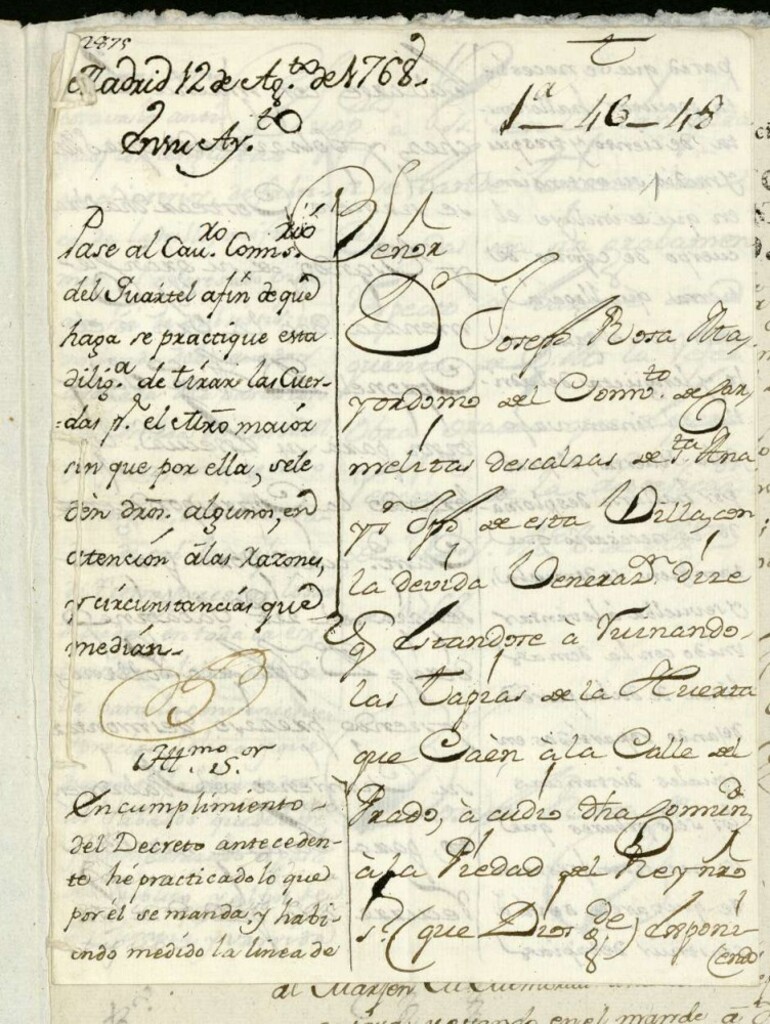 Madrid 12 de Ag.to de 1768.
En su Ay.to
1a_46_48
Pase al Cav.xo Comis.xio
del Quartel afin de que
haga se practique esta
dilig.a de tirar las Cuer-
=das p.r el Mro maior
sin que por ella, sele
dèn dros. algunos, en
atención álas razones,
y circunstancias que
median.
Ill.mo S.or
En cumplimiento
del Decreto anteceden-
te hé practicado lo que
por él se manda, y habi-
endo medido la linea de
Señor
D.n Joseph Rosa Ma,
yordomo del Comv.to de Car,
melitas descalzas de S.ta Ana
de esta Villa, con
la devida Veneraz.n dize
q.e estandose a Ruinando
las Tapias de la Huerta
que Caèn à la Calle del
Prado, à cudio dha Comun.d
à la Piedad del Rey nro
s.r (que Dios g.de) disponi
(endo
al Marjen
en el